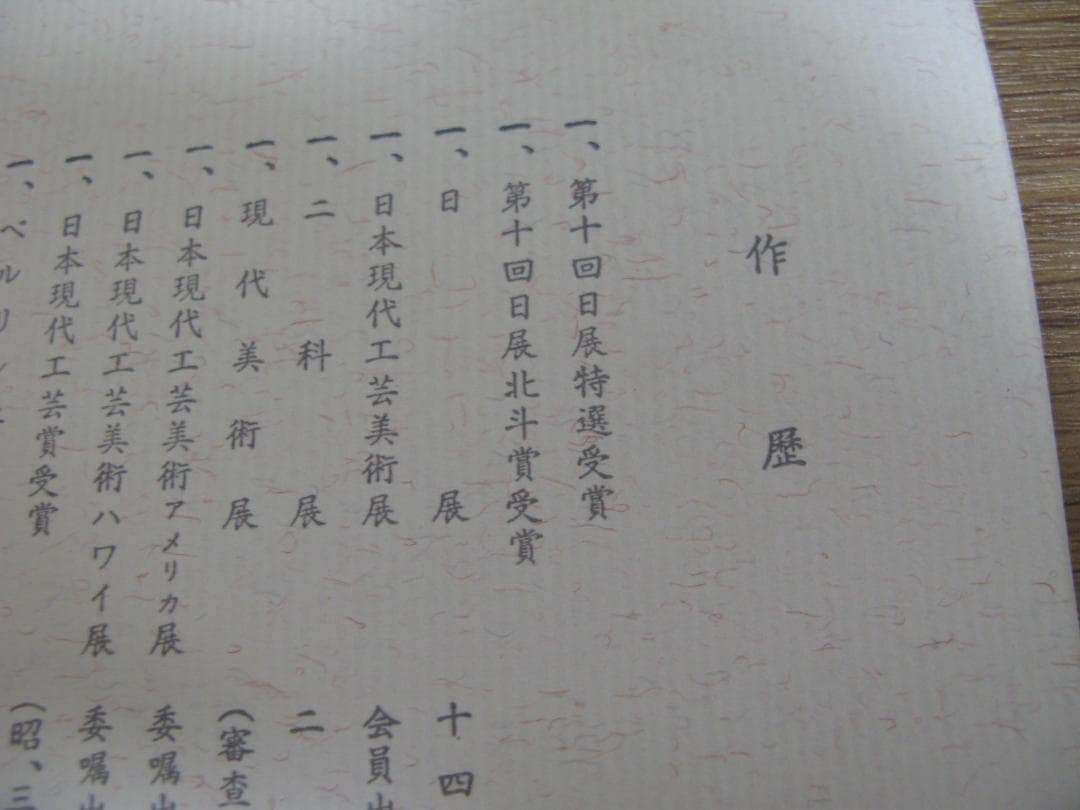 作歴
一、第十回日展特選受賞
一、第十回日展北斗賞受賞
一、日展 十四
一、日本現代工芸美術展 会員出
一、二科展 二
一、現代美術展 (審査
一、日本現代工芸美術アメリカ展 委嘱出
一、日本現代工芸美術ハワイ展 委嘱出
一、日本現代工芸賞受賞 (昭、三
一、ベルリン